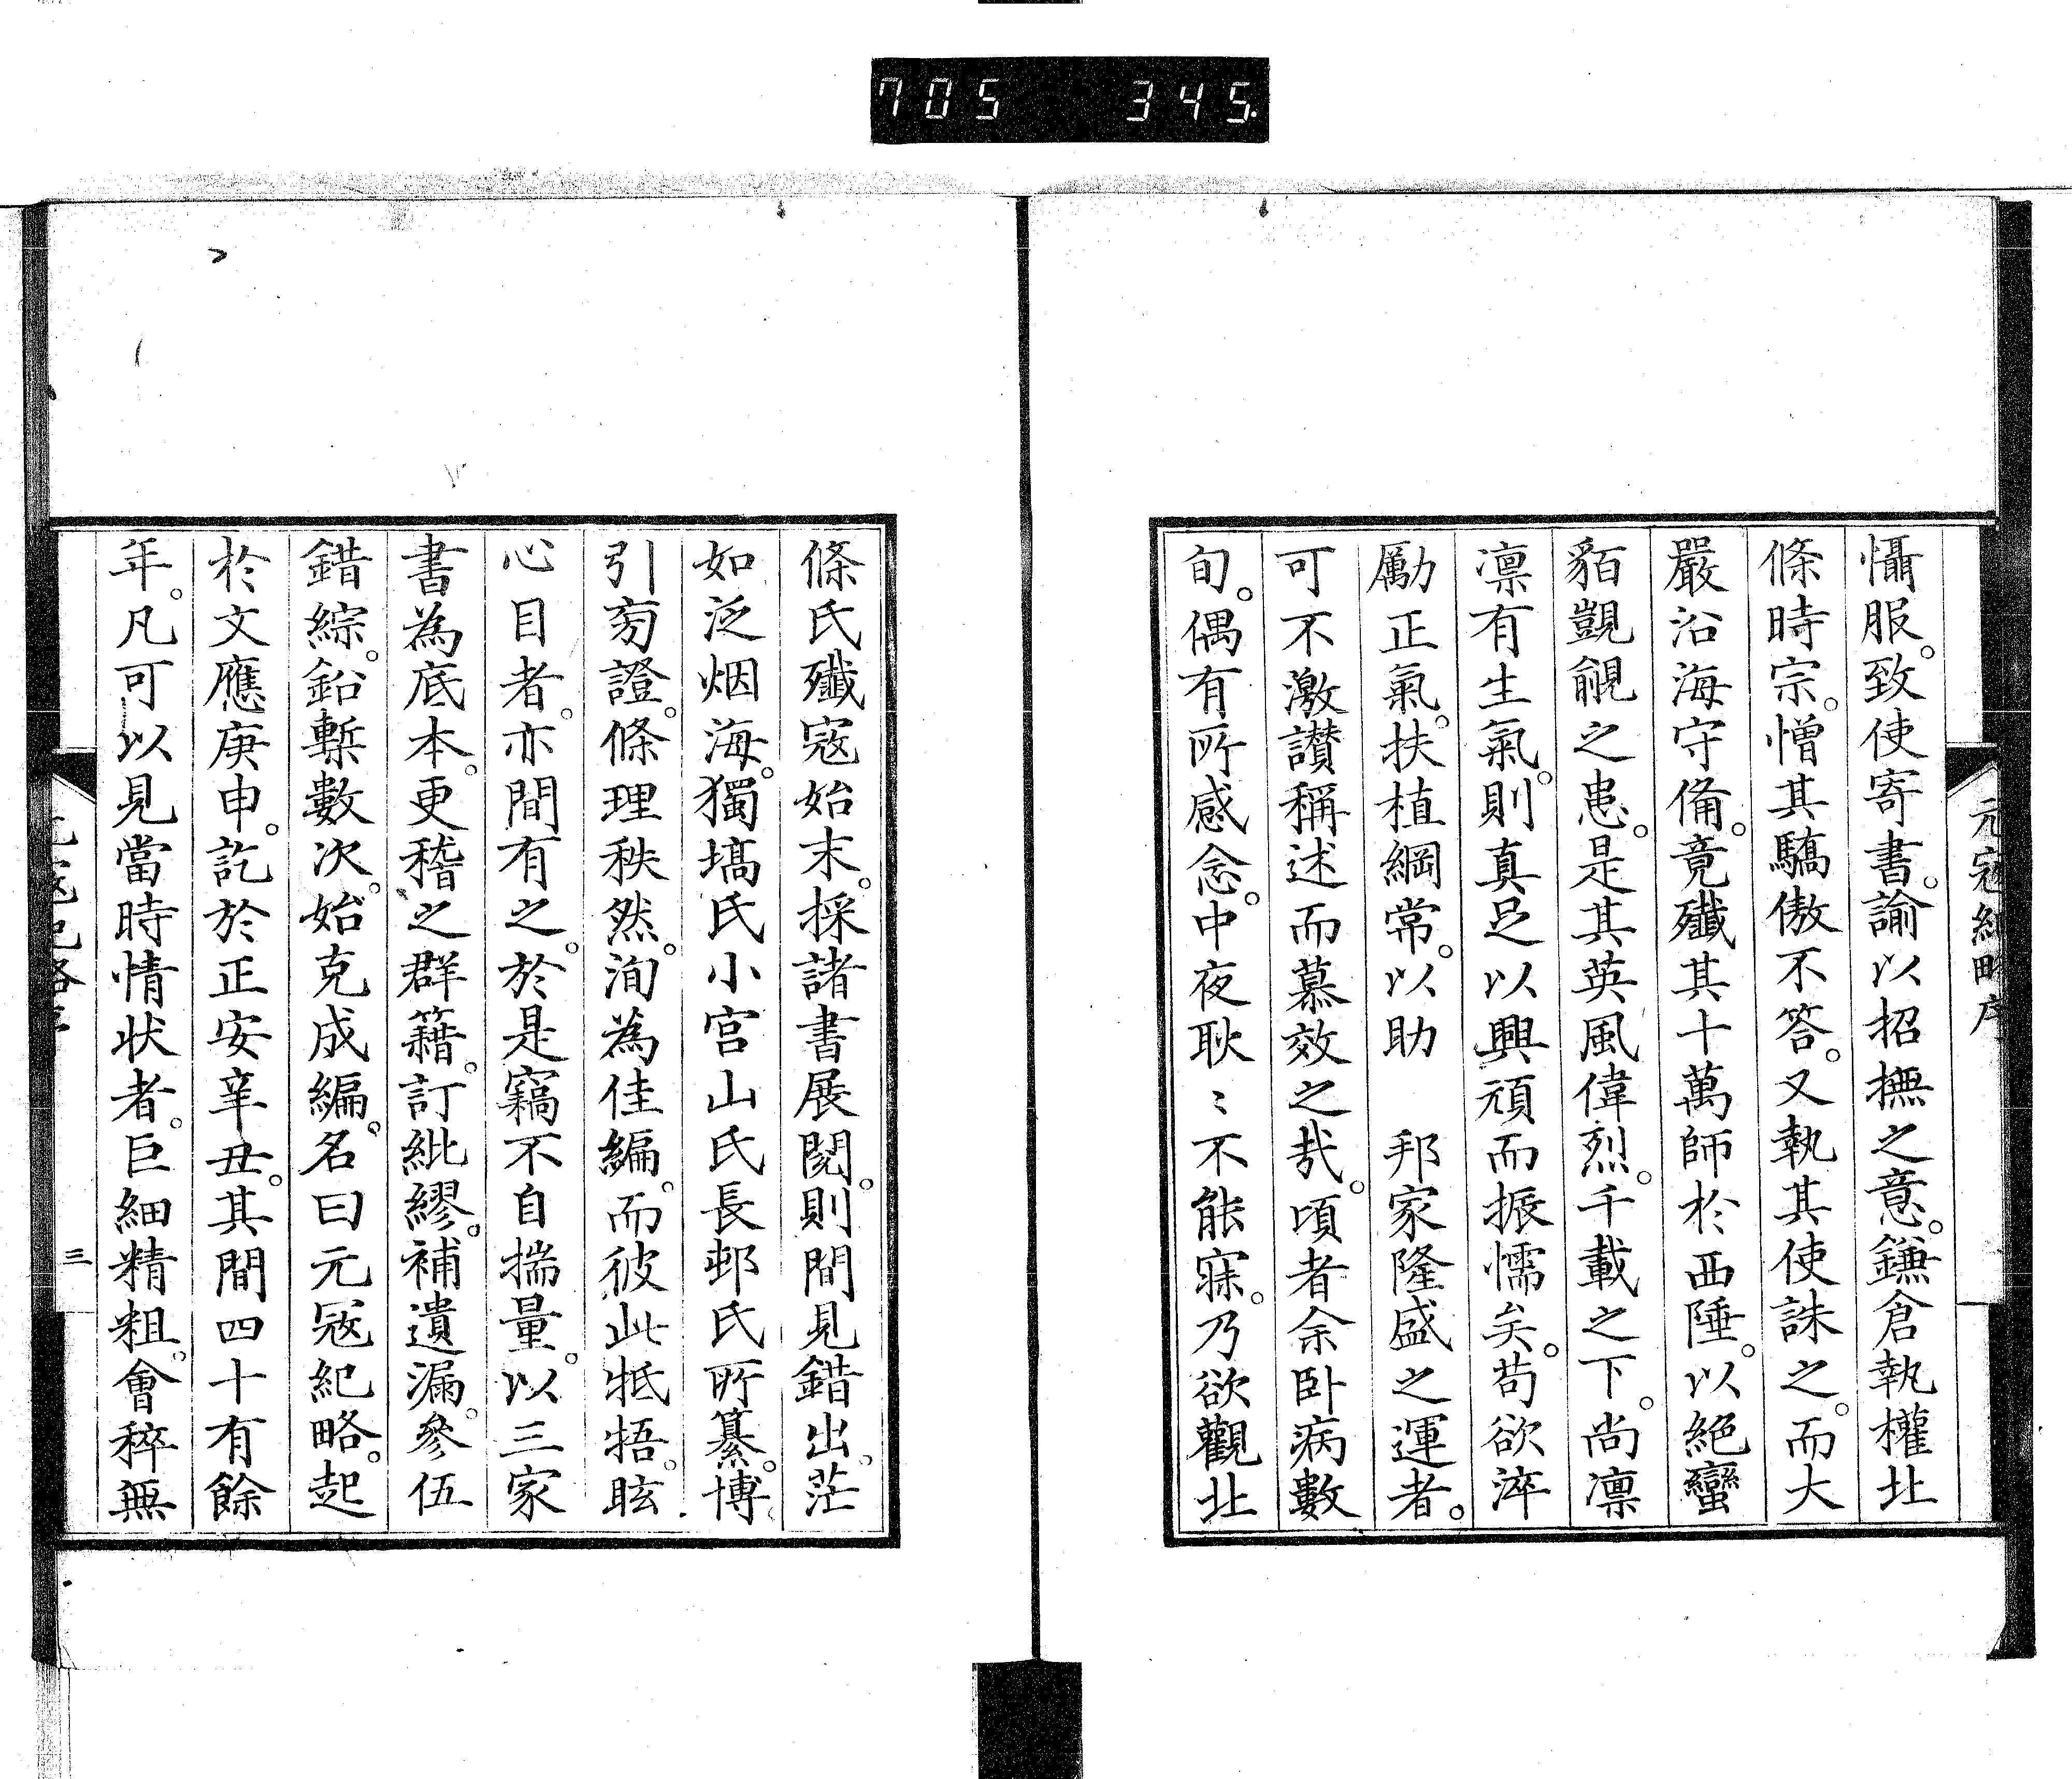 705 345.
元寇紀略序
懾服。致使寄書。諭以招撫之意。鎌倉執權北
條時宗。憎其驕傲不答。又執其使誅之。而大
嚴沿海守備。竟殱其十萬師於西陲。以絕蠻
貊覬覦之患。是其英風偉烈。千載之下。尚凛
凛有生氣。則真足以興頑而振懦矣。苟欲淬
勵正氣。扶植綱常。以助　邦家隆盛之運者。
可不激讃稱述而慕效之哉。頃者余卧病數
旬。偶有所感念。中夜耿〻不能寐。乃欲觀北
條氏殱寇始末。採諸書展閱。則間見錯出。茫
如泛烟海。獨塙氏小宮山氏長邨氏所纂。博
引旁證。條理秩然。洵為佳編。而彼此牴牾。眩
心目者。亦間有之。於是竊不自揣量。以三家
書為底本。更稽之群籍。訂紕繆。補遺漏。參伍
錯綜。鉛槧數次。始克成編。名曰元寇紀略。起
於文應庚申。訖於正安辛丑。其間四十有餘
年。凡可以見當時情状者。巨細精粗。會稡無
元寇紀略序
三